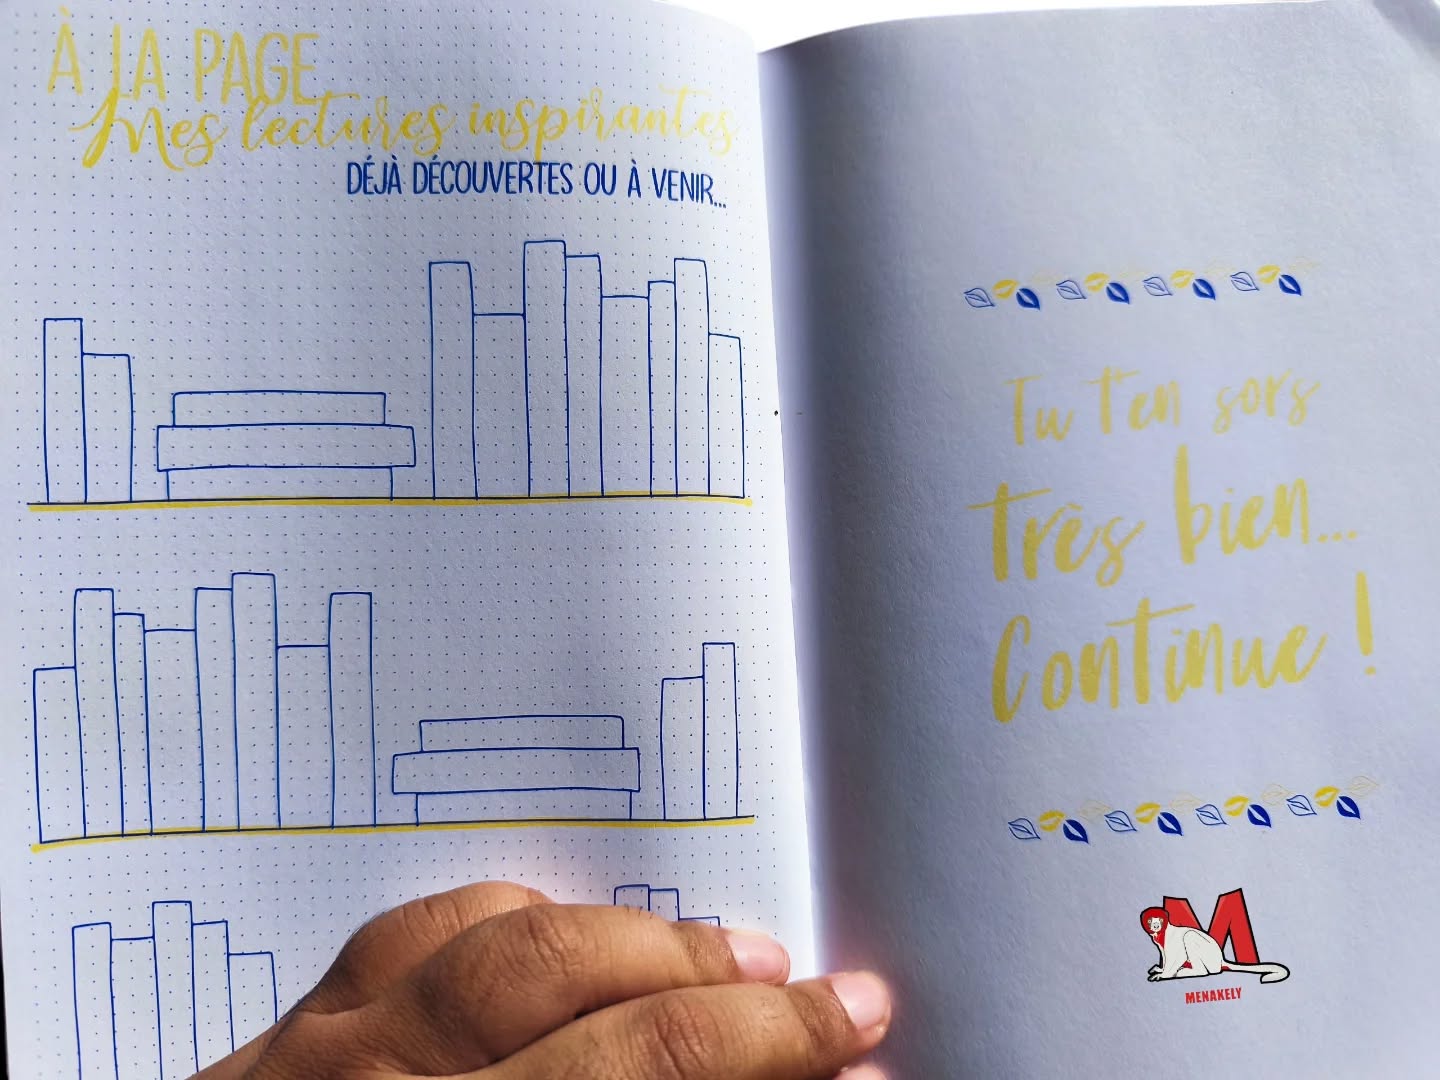 À LA PAGE
Mes lectures inspirantes
DÉJÀ DÉCOUVERTES OU À VENIR...
Tu t'en sors
très bien...
Continue !
M
MENAKELY